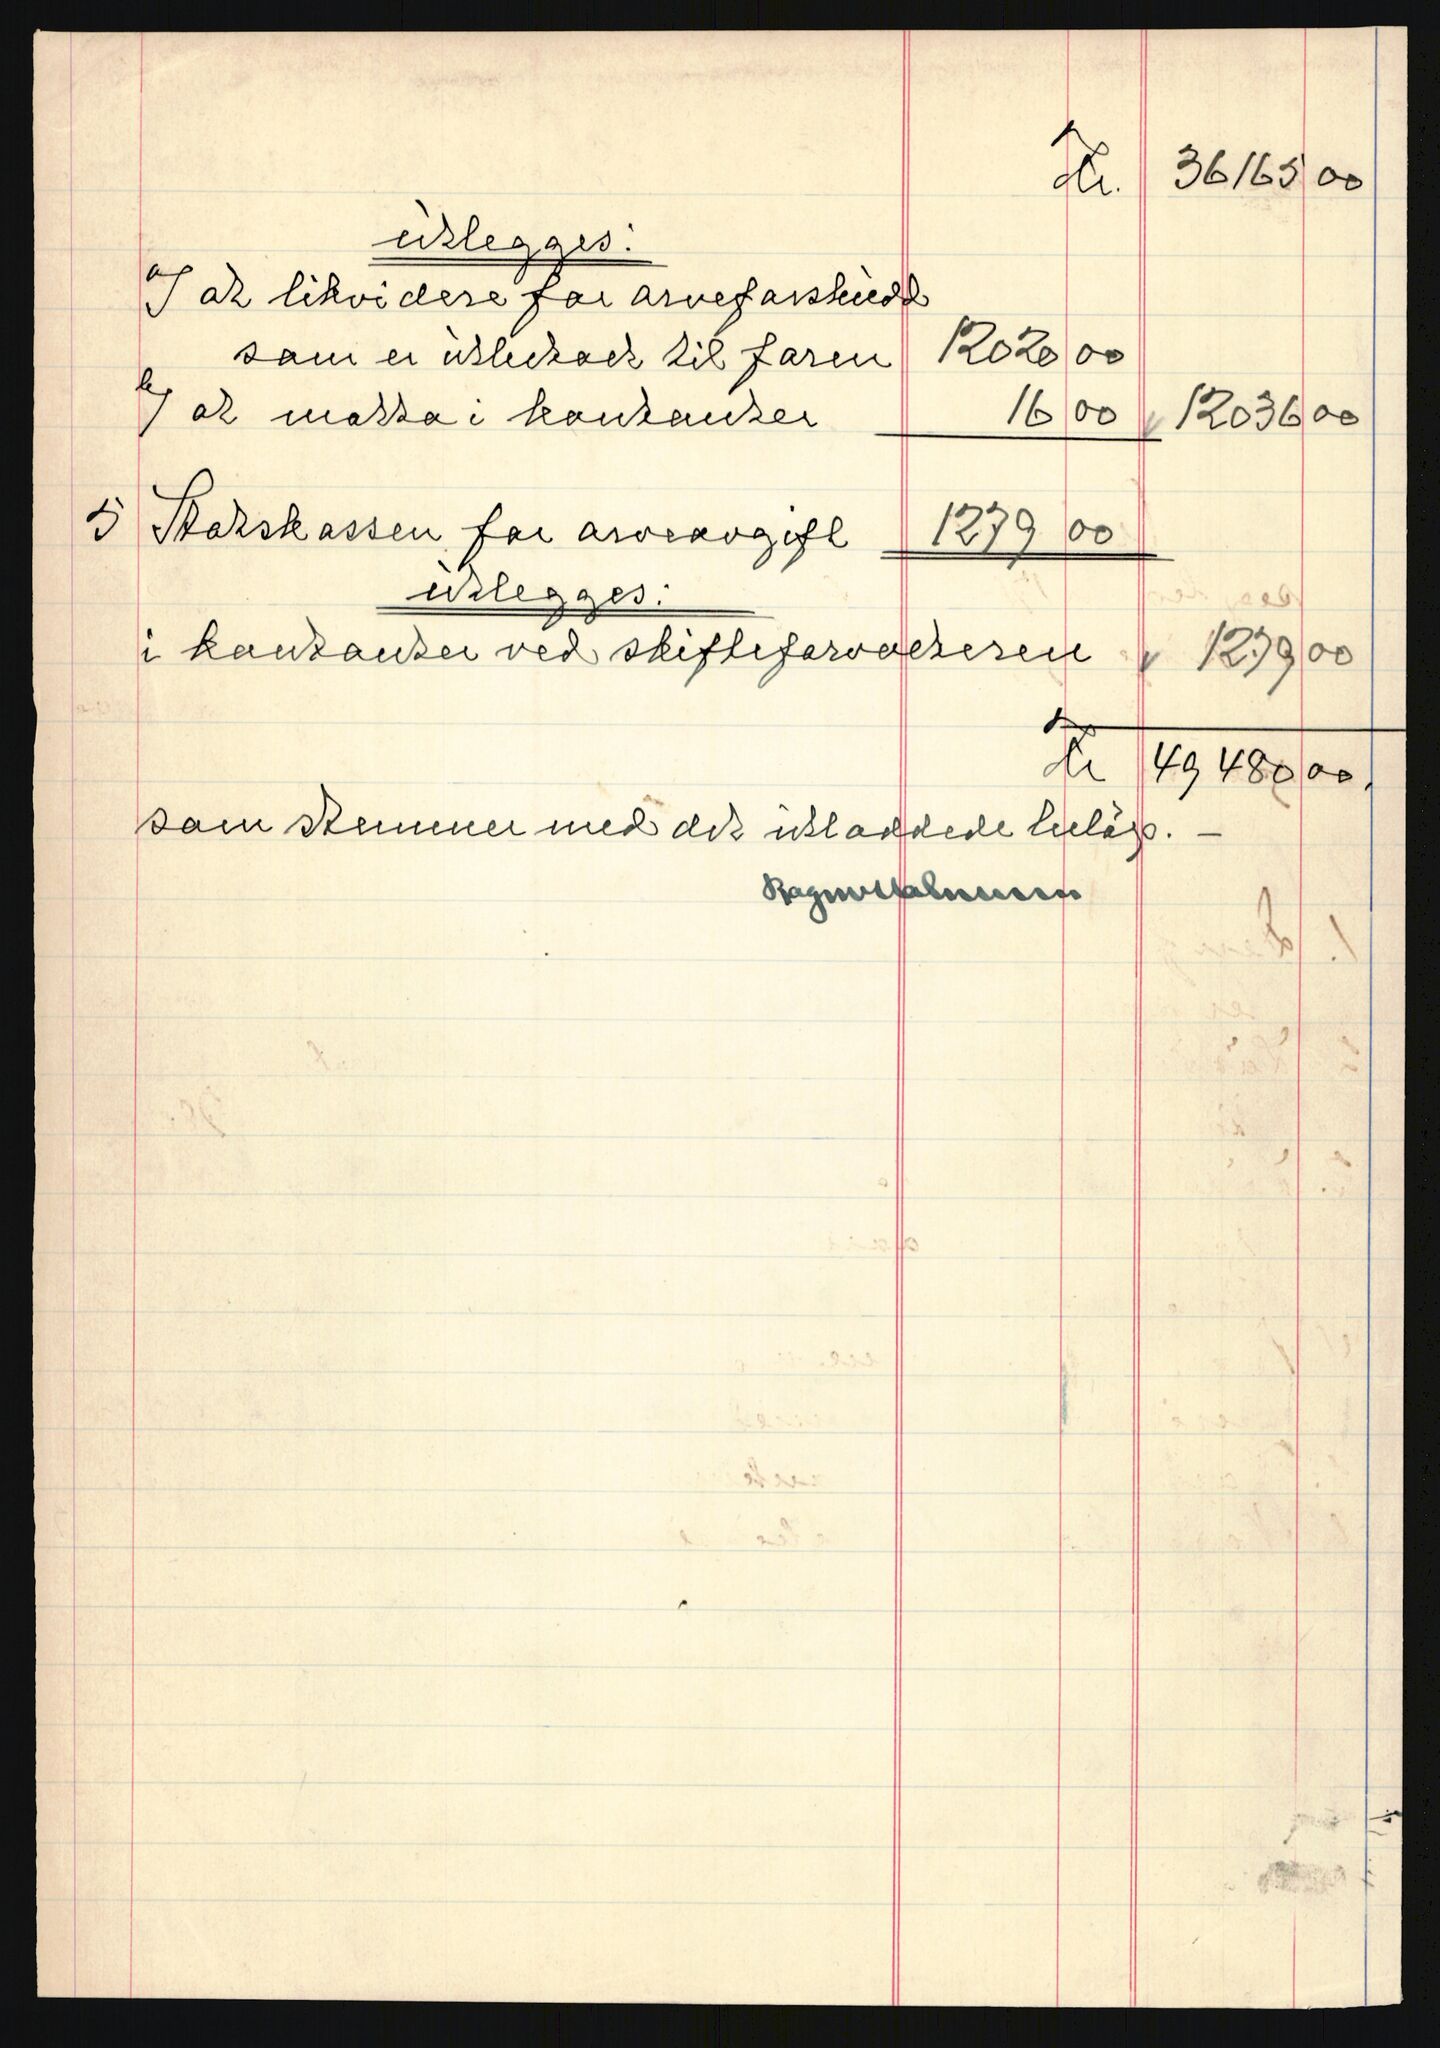 Kr. 36165 00
utlegges:
a/ at likvidere for arveforskudd
som er utbetalt til faren 12020 00
b/ at motta i kontanter 16 00 " 12036 00
5 Statskassen for arveavgift 1279 00
utlegges:
i kontanter ved skifteforvalteren " 1279 00
Kr 49 480 00.
som stemmer med det utloddede beløp. –